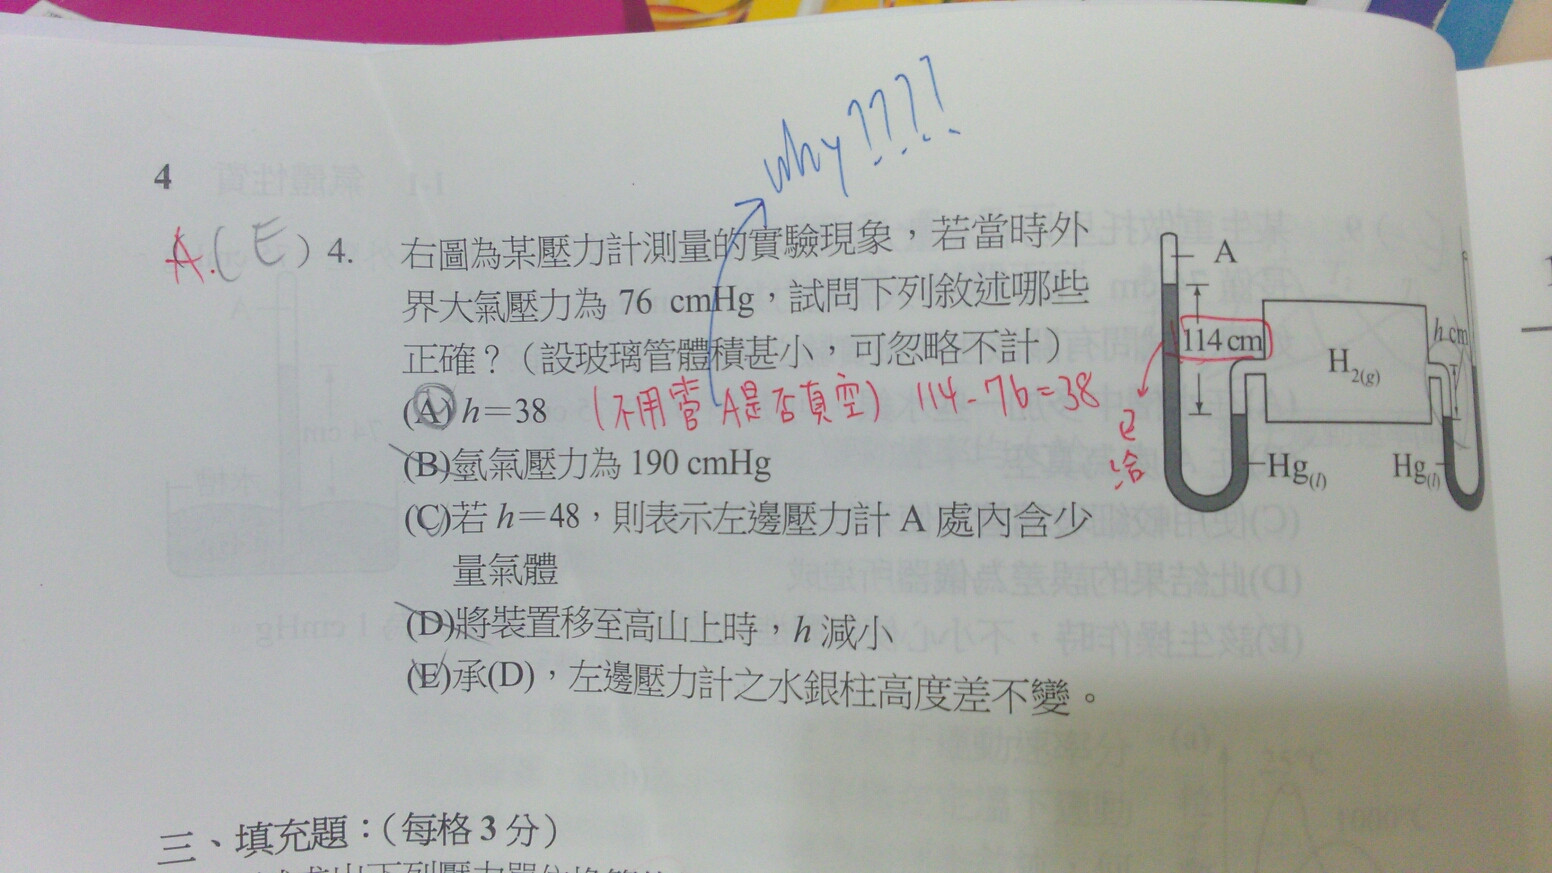 why????
4
A. (CE) 4. 右圖為某壓力計測量的實驗現象，若當時外
界大氣壓力為 76 cmHg，試問下列敘述哪些
正確？（設玻璃管體積甚小，可忽略不計）
(A) h＝38 (不用管 A是否真空) 114-76=38
(B)氫氣壓力為 190 cmHg
(C)若 h＝48，則表示左邊壓力計 A 處內含少
量氣體
(D)將裝置移至高山上時，h 減小
(E)承(D)，左邊壓力計之水銀柱高度差不變。
A
114 cm
H2(g)
h cm
Hg(l)
Hg(l)
已
洽
三、填充題：（每格 3 分）